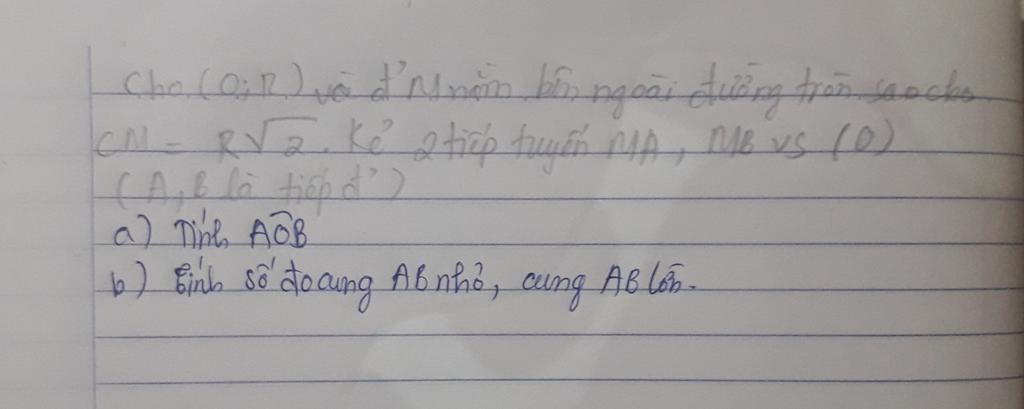 Cho (O;R) và đ' M nằm bên ngoài đường tròn sao cho
OM = R√2. Kẻ 2 tiếp tuyến MA, MB vs (O)
(A, B là tiếp đ')
a) Tính AÔB
b) Tính số đo cung AB nhỏ, cung AB lớn.